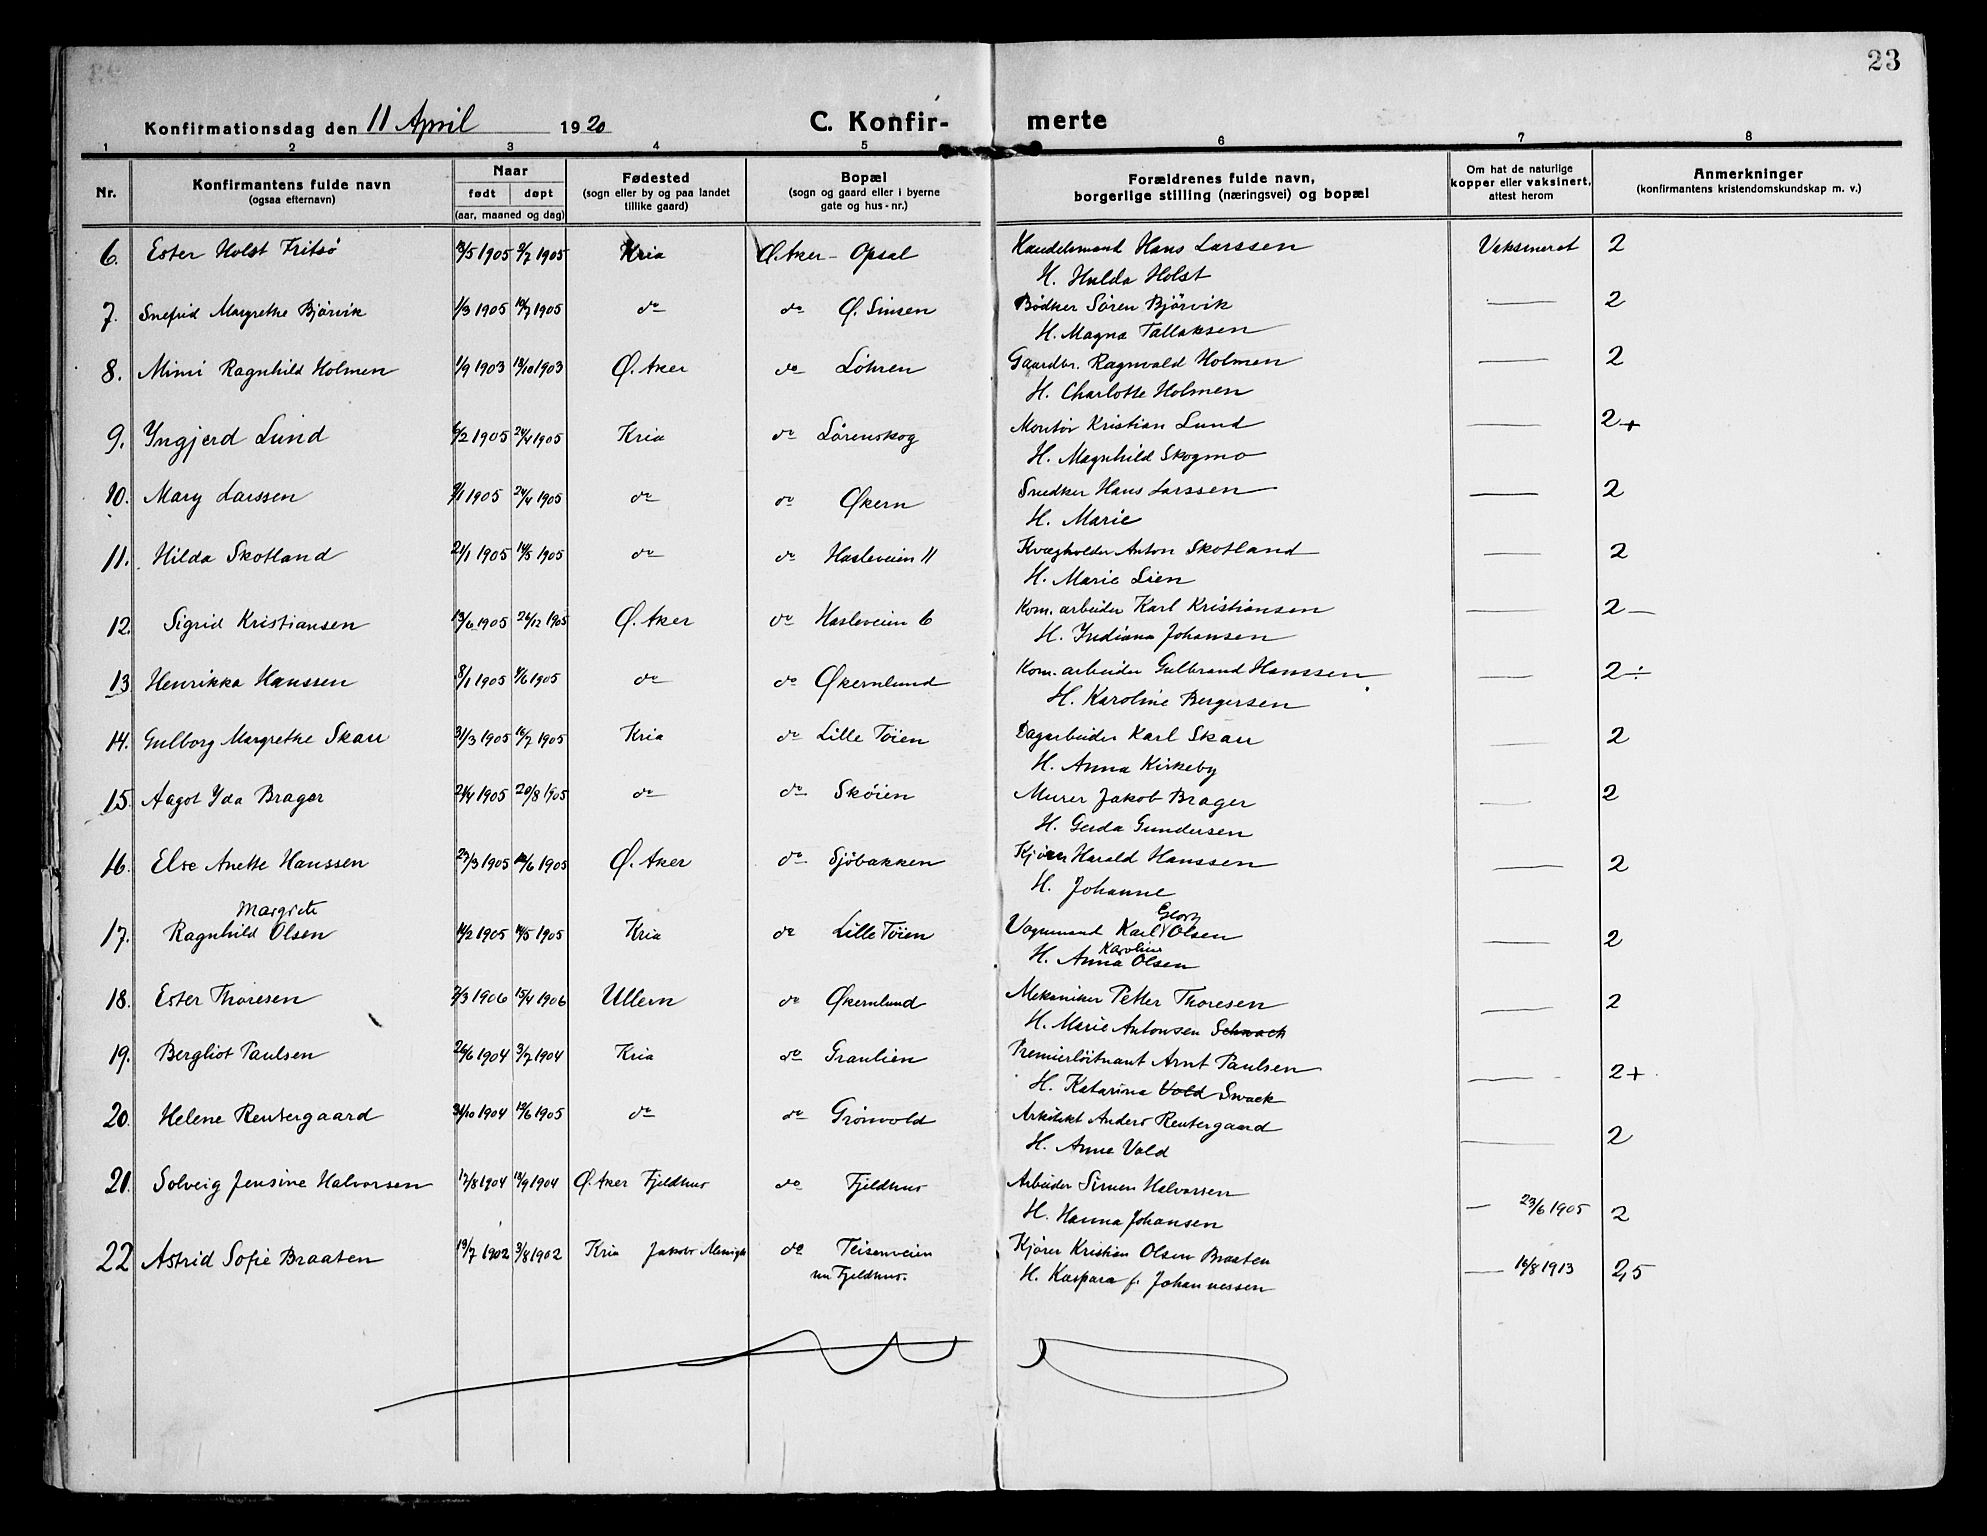 23
Konfirmationsdag den 11 April 1920 C. Konfir- merte
1 2 3 4 5 6 7 8
Nr. Konfirmantens fulde navn (ogsaa efternavn) Naar født døpt (aar, maaned og dag) Fødested (sogn eller by og paa landet tillike gaard) Bopæl (sogn og gaard eller i byerne gate og hus-nr.) Forældrenes fulde navn, borgerlige stilling (næringsvei) og bopæl Om hat de naturlige kopper eller vaksinert, attest herom Anmerkninger (konfirmantens kristendomskundskap m. v.)
6. Ester Holst Fritsø /5 1905 2/7 1905 Kria Ø. Aker - Opsal Handelsmand Hans Larssen Vaksineret 2
H. Hulda Holst
7. Snefrid Margrethe Bjørvik 1/3 1905 /7 1905 do do Ø. Sinsen Bødker Søren Bjørvik — 2
H. Magna Tallaksen
8. Mimi Ragnhild Holmen 1/9 1903 /10 1903 Ø. Aker do Löhren Gaardbr. Ragnvald Holmen — 2
H. Charlotte Holmen
9. Yngjerd Lund /2 1905 24/4 1905 Kria do Lørenskog Montør Kristian Lund — 2+
H. Magnhild Skogmo
10. Mary Larssen 9/1 1905 24/4 1905 do do Økern Snedker Hans Larssen — 2
H. Marie
11. Hilda Skotland 21/1 1905 14/5 1905 do do Hasleveien 11 Kvægholder Anton Skotland — 2
H. Marie Lien
12. Sigrid Kristiansen 13/6 1905 26/12 1905 Ø. Aker do Hasleveien 6 Kom. arbeider Karl Kristiansen — 2 —
H. Indiana Johansen
13 Henrikka Hanssen 8/1 1905 /6 1905 do do Økernlund Kom. arbeider Gulbrand Hanssen — 2 ÷
H. Karoline Bergersen
14. Gulborg Margrethe Skau 31/3 1905 16/7 1905 Kria do Lille Töien Dagarbeider Karl Skau — 2
H. Anna Kirkeby
15. Aagot Yda Brager 24/4 1905 20/8 1905 do do Skøien Murer Jakob Brager — 2
H. Gerda Gundersen
16. Else Anette Hanssen 23/3 1905 /6 1905 Ø. Aker do Sjöbakken Kjører Harald Hanssen — 2
H. Johanne
Margrete Georg
17. Ragnhild Olsen 14/2 1905 /5 1905 Kria do Lille Töien Vognmand Karl Olsen — 2
Karoline
H. Anna Olsen
18. Ester Thoresen 2/3 1906 15/4 1906 Ullern do Økernlund Mekaniker Petter Thoresen — 2
H. Marie Antonsen Schwach
19. Bergliot Paulsen 26/6 1904 3/7 1904 Kria do Graulien Premierløitnant Arnt Paulsen — 2+
H. Katarina Vold Swack
20. Helene Rentergaard 31/10 1904 /6 1905 do do Grönvold Arkitekt Anders Rentergaard — 2
H. Anne Vold
21. Solveig Jensine Halvorsen 17/8 1904 18/9 1904 Ø. Aker Fjeldhus do Fjeldhus Arbeider Simen Halvorsen — 23/6 1905 2
H. Hanna Johansen
22 Astrid Sofie Braaten 19/7 1902 3/8 1902 Kria Jakobs Menigh do Teisenveien Kjører Kristian Olsen Braaten — 16/8 1913 2,5
nu Fjeldhus. H. Kaspara f. Johannessen